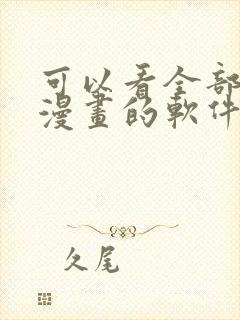 可以看全部
漫畫的軟件
久尾